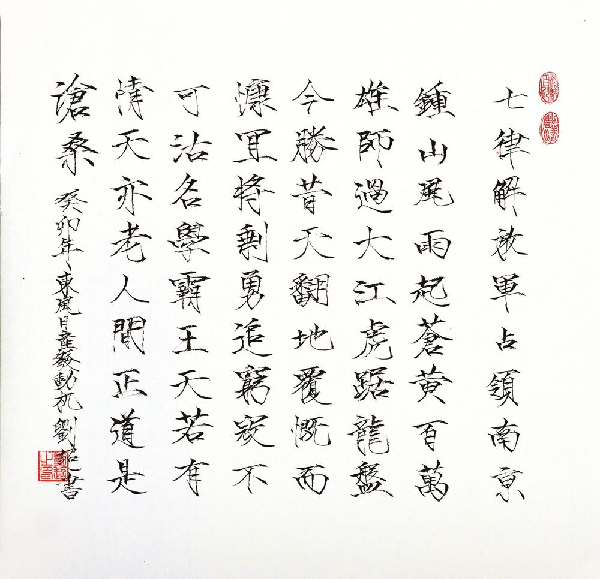 七律解放軍占領南京
鍾山風雨起蒼黄百萬
雄師過大江虎踞龍盤
今勝昔天翻地覆慨而
慷宜將剩勇追窮寇不
可沽名學霸王天若有
情天亦老人間正道是
滄桑
癸卯年東風日産發動机劉書